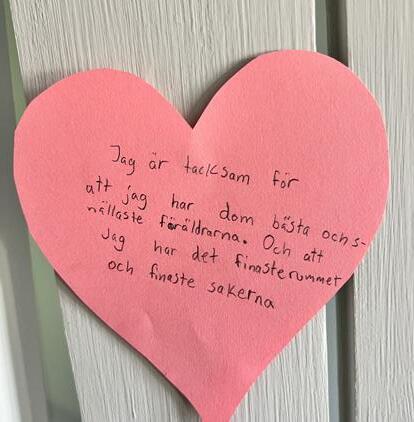 Jag är tacksam för
att jag har dom bästa och s-
nällaste föräldrarna. Och att
jag har det finasterummet
och finaste sakerna